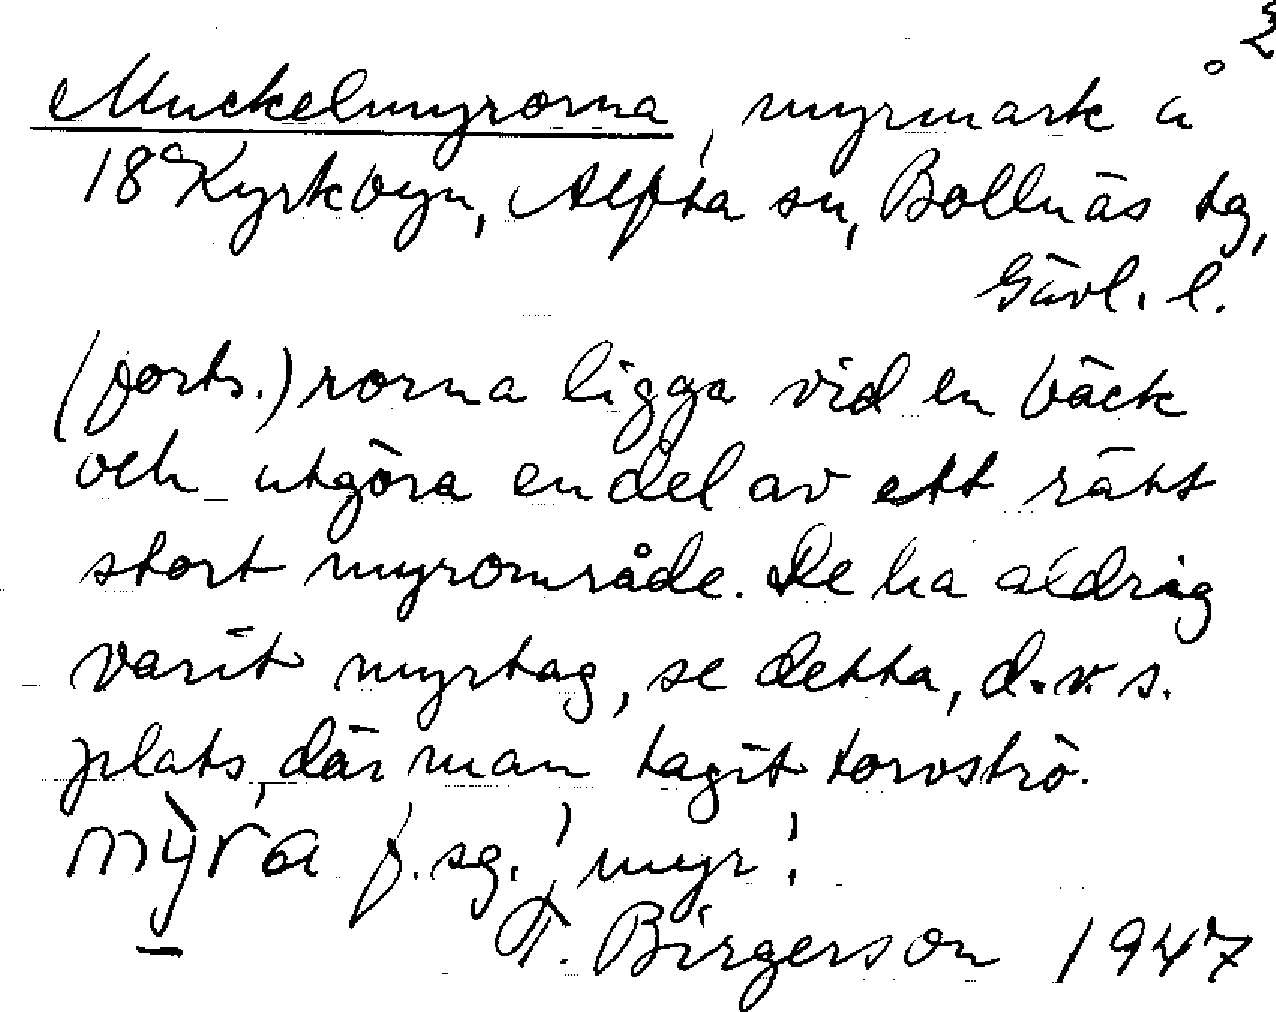 2
Muckelmyrorna, myrmark å
18 Kyrkbyn, Alfta sn, Bollnäs tg,
Gävl. l.
(forts.) rorna ligga vid en bäck
och utgöra en del av ett rätt
stort myrområde. De ha aldrig
varit myrtag, se detta, d.v.s.
plats, där man tagit torvströ.
mỳra f. sg. 'myr'.
T. Birgerson 1947